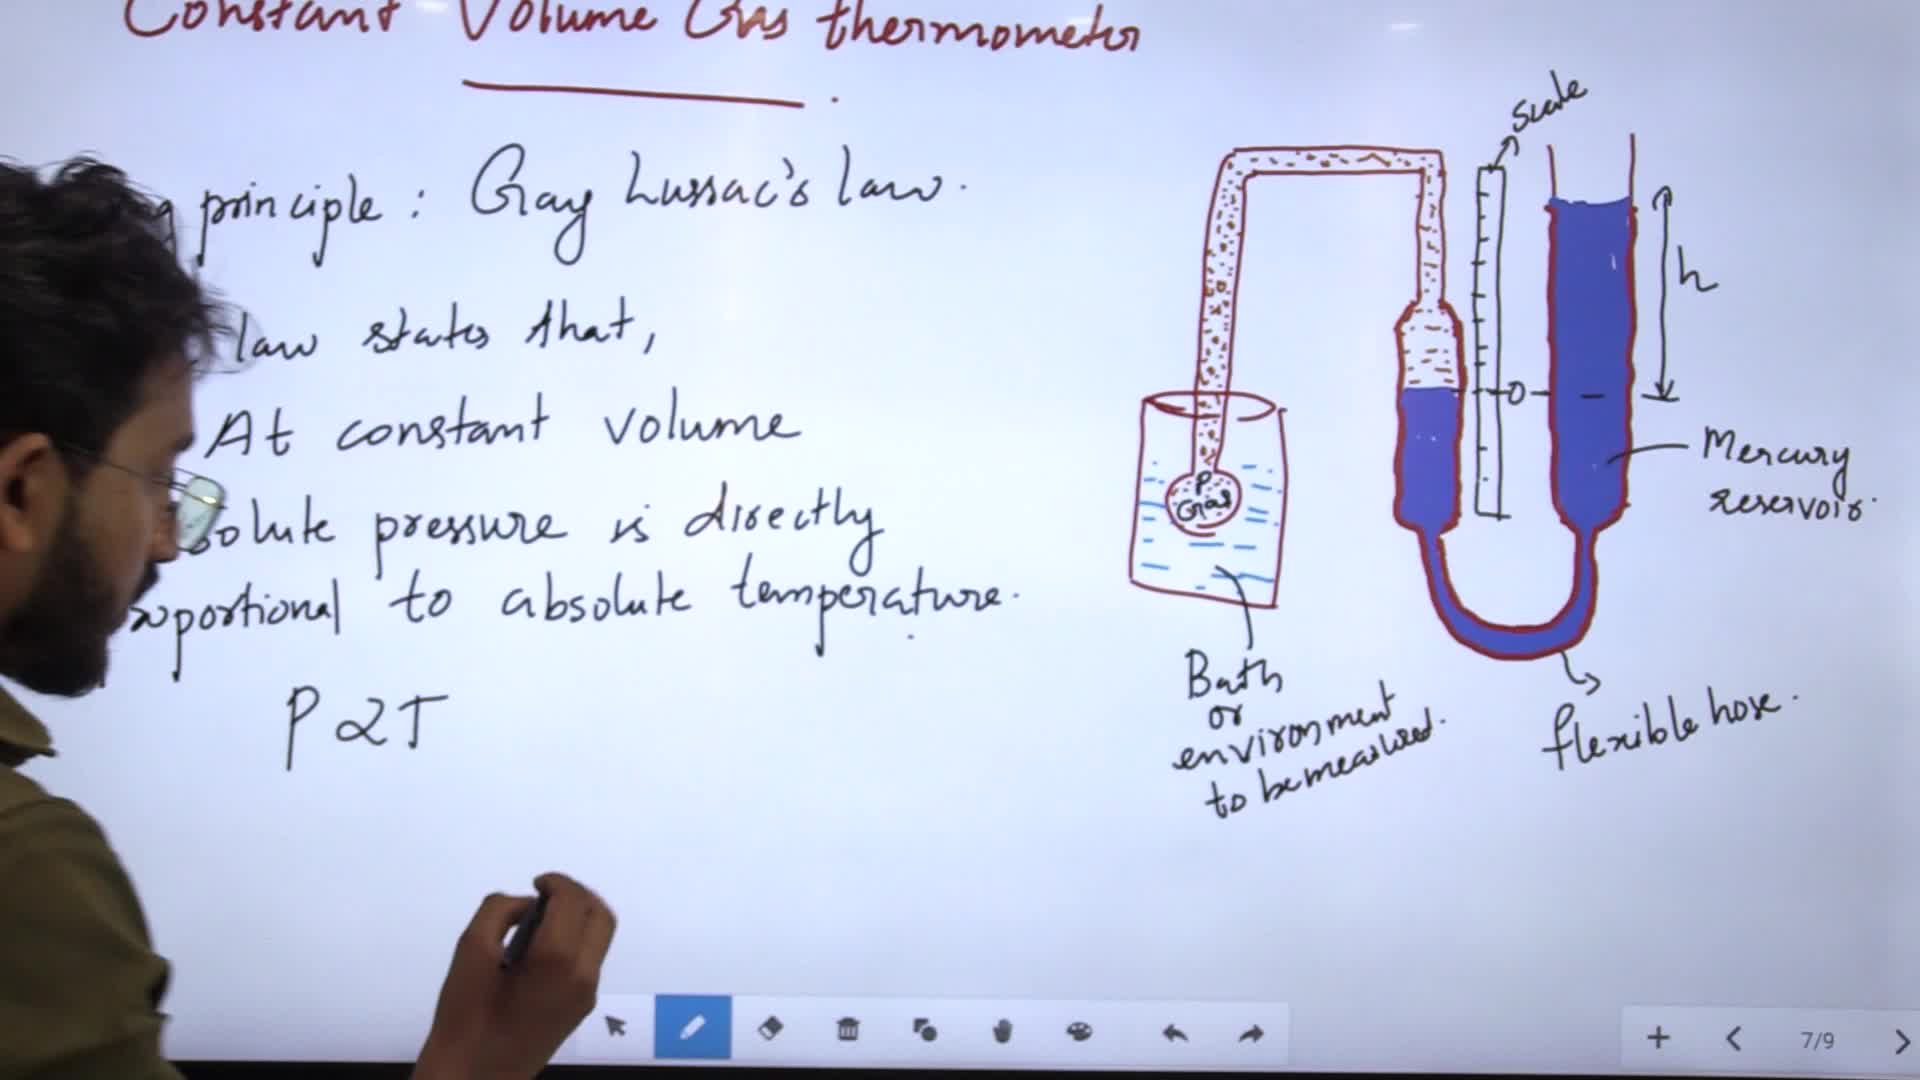 Constant Volume Gas thermometer
principle: Gay Lussac's law.
law states that,
At constant volume
solute pressure is directly
roportional to absolute temperature.
P α T
Scale
h
0
P
Gas
Mercury
reservoir.
Bath
or
environment
to be measured.
flexible hose.
7/9